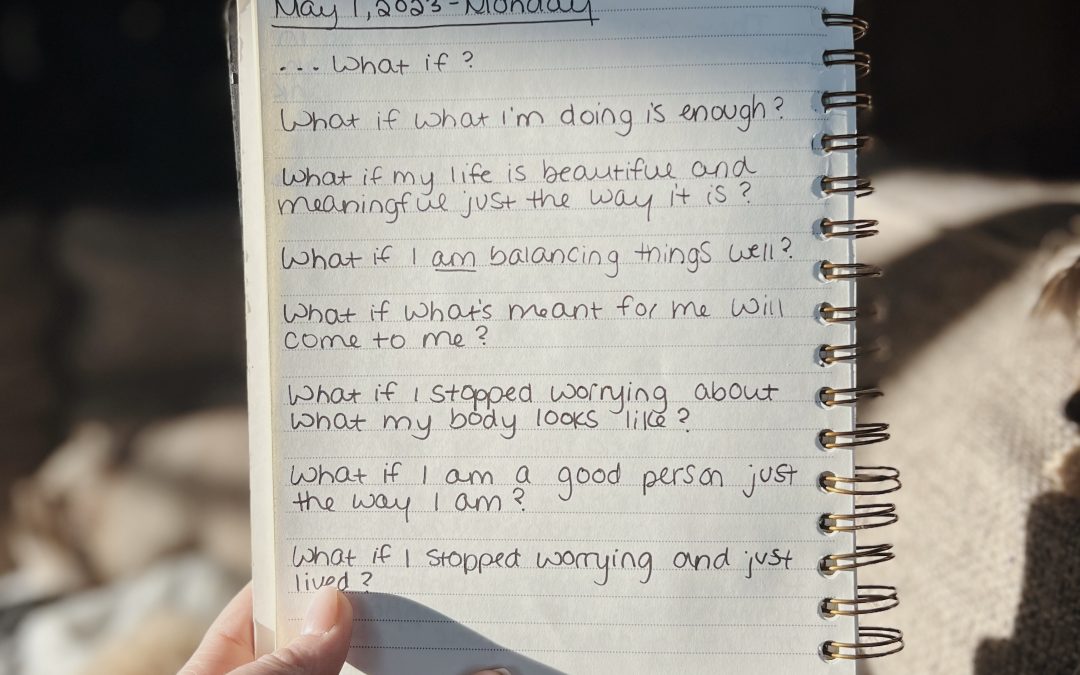 May 1, 2023 - Monday
... What if?
What if what I'm doing is enough?
What if my life is beautiful and
meaningful just the way it is?
What if I am balancing things well?
What if what's meant for me will
come to me?
What if I stopped worrying about
what my body looks like?
What if I am a good person just
the way I am?
What if I stopped worrying and just
lived?